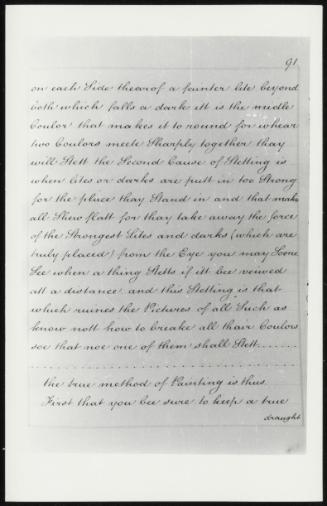 91
on each Side thearof a fainter lite beyond
both which falls a dark itt is the midle
Coulor that makes it to round for whear
two Coulors meete Sharply together thay
will Sett the Second Cause of Setting is
when lites or darks are putt in too Strong
for the place thay Stand in and that make
all Shew flatt for thay take away the force
of the Strongest Lites and darks (which are
truly placed) from the Eye you may Soone
See when a thing Setts if itt bee veiwed
att a distance and this Setting is that
which ruines the Pictures of all Such as
know nott how to breake all thair Coulors
soe that noe one of them shall Sett.......
The true method of Painting is thus
First that you bee sure to keep a true
draught